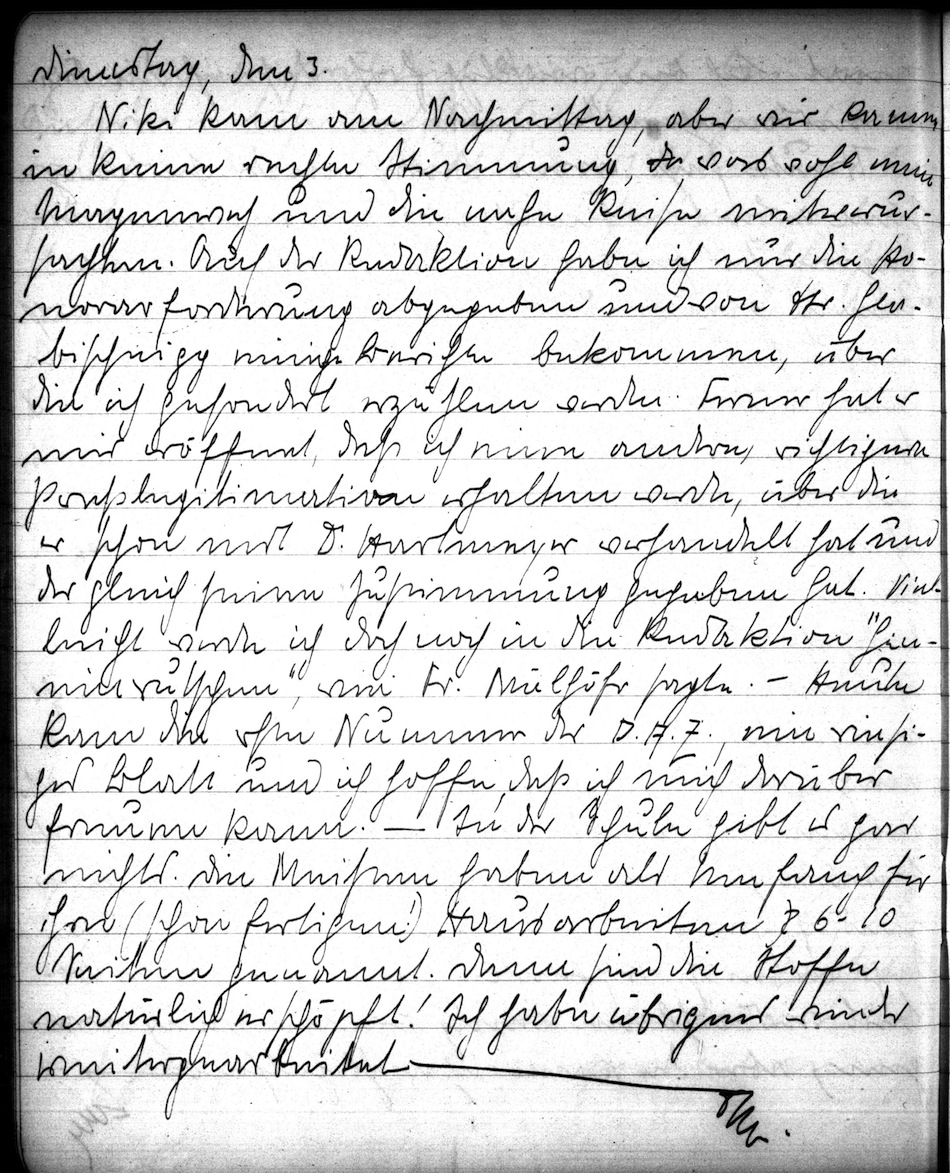 Dienstag, den 3.
Niki kam am Nachmittag, aber wir kamen
in keine rechte Stimmung, da was wohl mein
Magenweh und die nahe Reise mitverur-
sachten. Auf der Redaktion habe ich nur die Ho-
norarforderung abgegeben und von Hr. Gla-
bischnigg einige Berichte bekommen, über
die ich gesondert erzählen werde. Ferner hat er
mir eröffnet, daß ich eine andere, richtigere
Presselegitimation erhalten werde, über die
er schon mit D. Hartmeyer verhandelt hat und
der gleich seine Zustimmung gegeben hat. Viel-
leicht werde ich doch noch in die Redaktion "hin-
einrutschen", wie Fr. Mülhöfr sagte. – Heute
kam die erste Nummer der D.A.Z., ein riesi-
ges Blatt und ich hoffe, daß ich mich darüber
freuen kann. — In der Schule gibt es gar
nichts. Die Meisten haben als Umfang für
ihre (schon fertigen!) Hausarbeiten 6-10
Seiten genannt. Dann sind die Stoffe
natürlich erschöpft! Ich habe übrigens wieder
weitergearbeitet